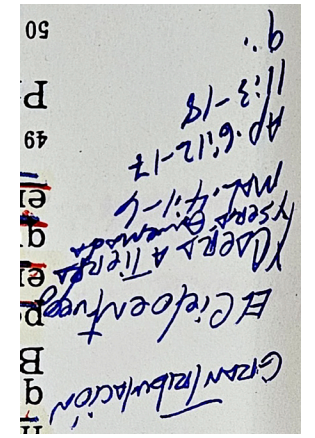 GRAN TRIBULACIÓN
El Cielo en fuego
Y CAERÁ A TIERRA
Y SERÁ Quemada
MAL. 4:1-6
AP. 6:12-17
11:3-18
49
50